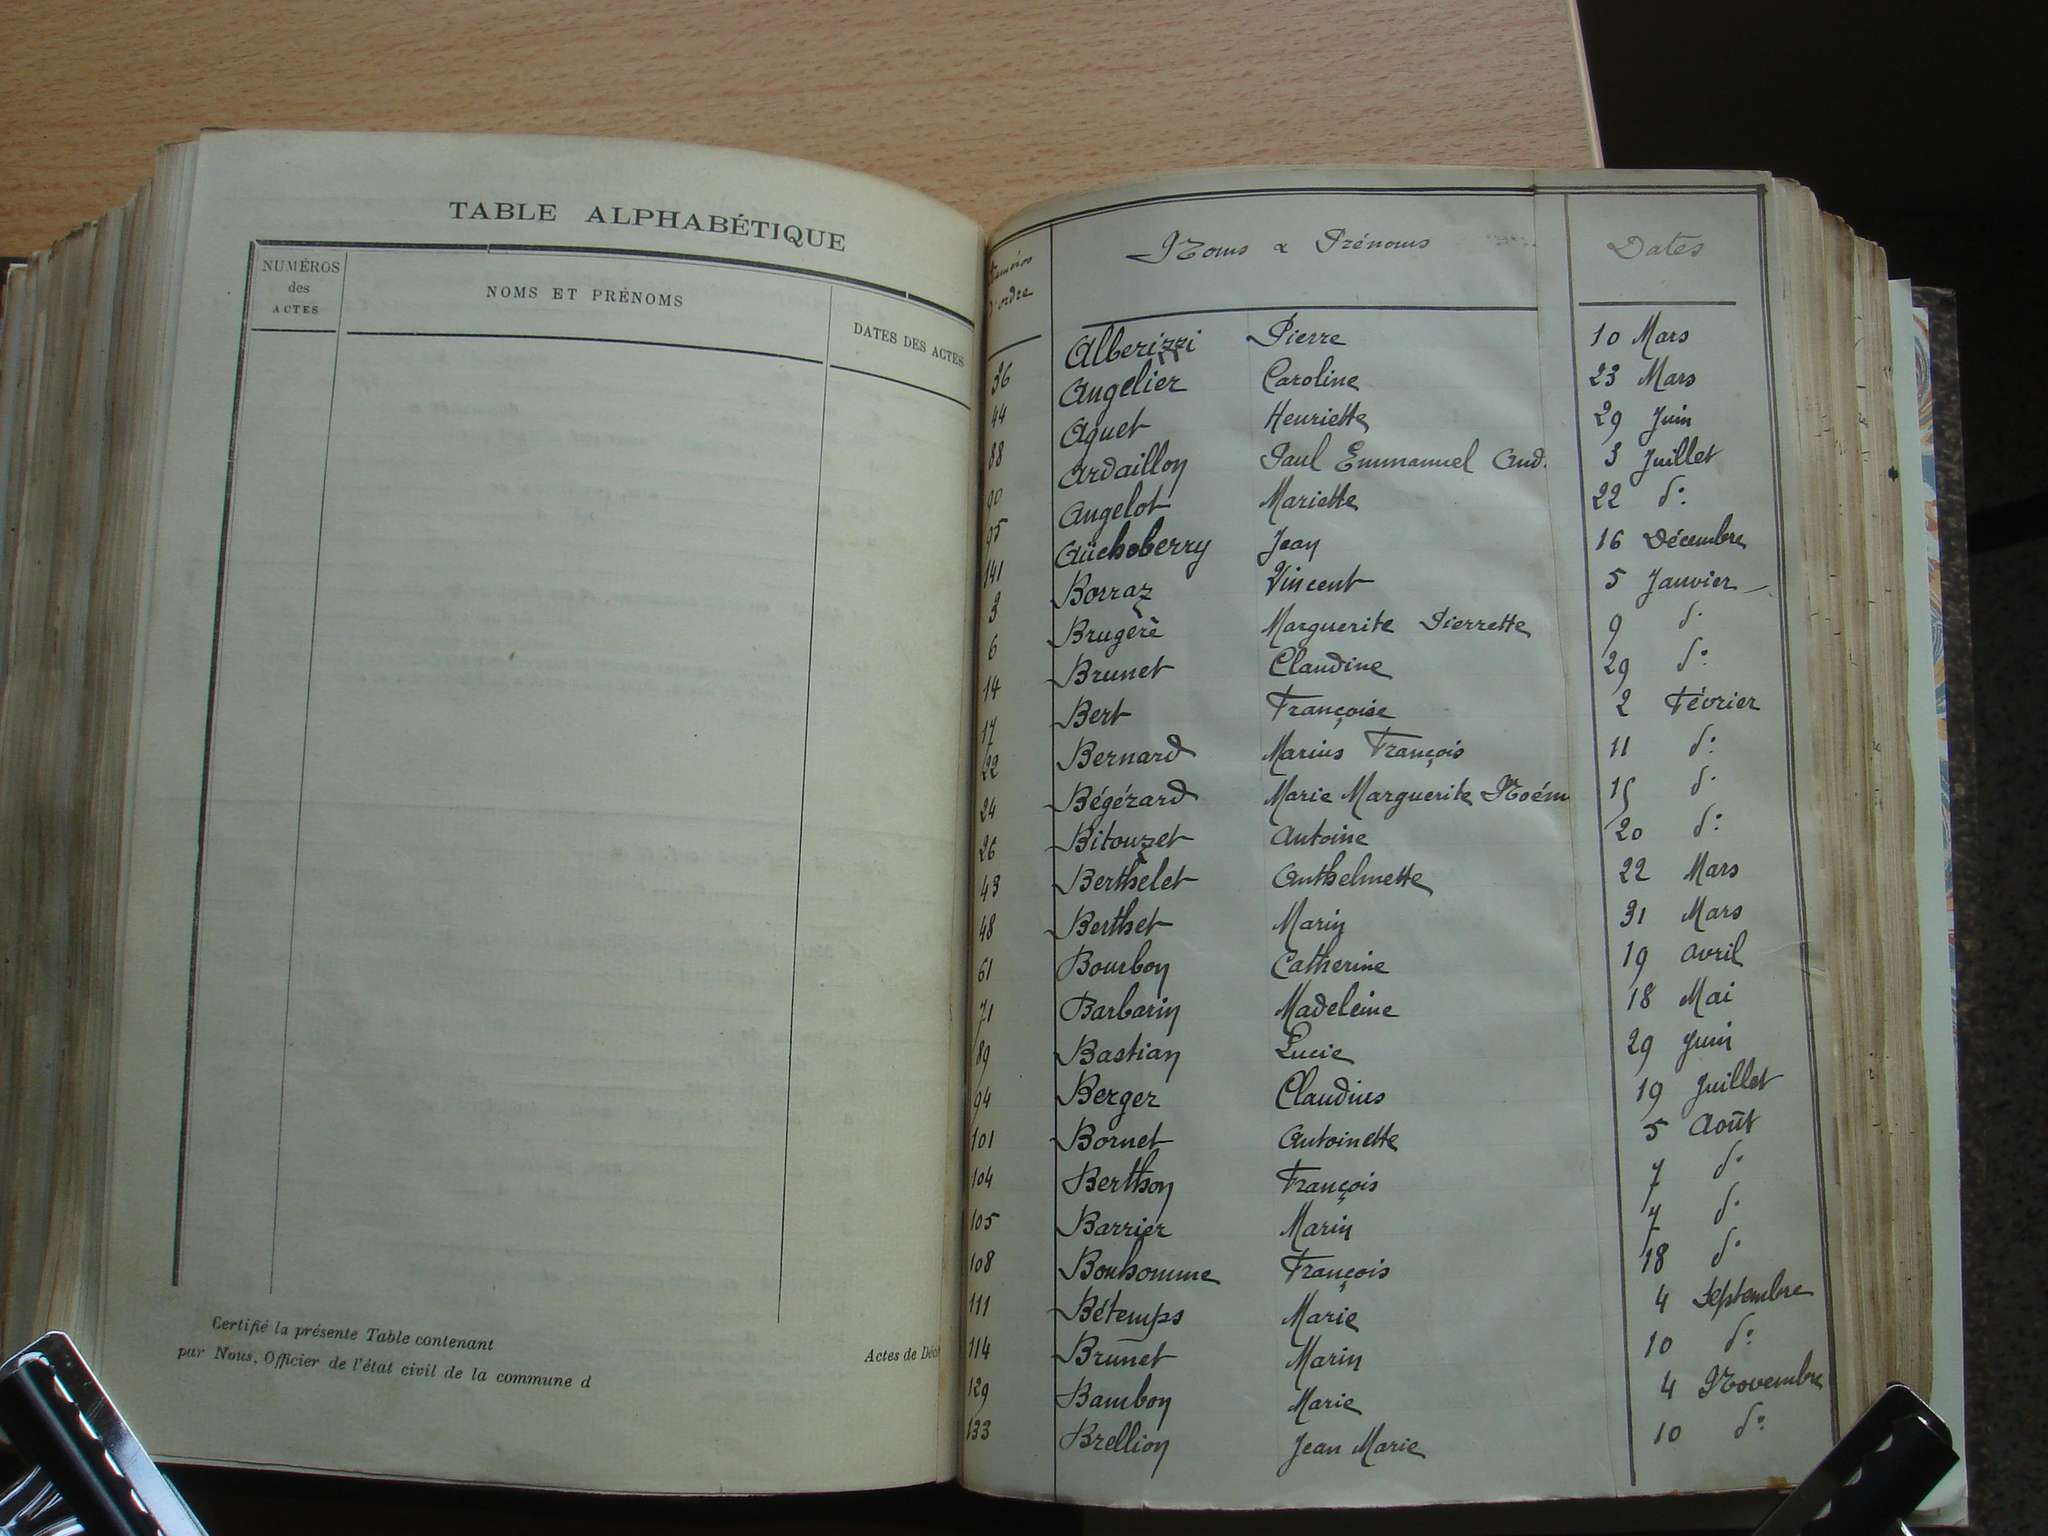 TABLE ALPHABÉTIQUE
NUMÉROS des ACTES
NOMS ET PRÉNOMS
DATES DES ACTES
Certifié la présente Table contenant
Actes de Déc
par Nous, Officier de l'état civil de la commune d
Numéros d'ordre
Noms & Prénoms
Dates
36 Alberizzi Pierre 10 Mars
44 Angelier Caroline 23 Mars
88 Aguet Henriette 29 Juin
90 Ardaillon Paul Emmanuel And. 3 Juillet
95 Angelot Mariette 22 d°
141 Aüchoberry Jean 16 Décembre
3 Borraz Vincent 5 Janvier
6 Brugère Marguerite Pierrette 9 d°
14 Brunet Claudine 29 d°
17 Bert Françoise 2 Février
22 Bernard Marius François 11 d°
24 Bégérard Marie Marguerite Noém 15 d°
26 Bitouzet Antoine 20 d°
43 Berthelet Anthelmette 22 Mars
48 Berthet Marin 31 Mars
61 Bourbon Catherine 19 Avril
71 Barbarin Madeleine 18 Mai
89 Bastian Lucie 29 Juin
94 Berger Claudius 19 Juillet
101 Bornet Antoinette 5 Août
104 Berthon François 7 d°
105 Barrier Marin 7 d°
108 Bonhomme François 18 d°
111 Bétemps Marie 4 Septembre
114 Brunet Marin 10 d°
129 Bambon Marie 4 Novembre
133 Brellion Jean Marie 10 d°